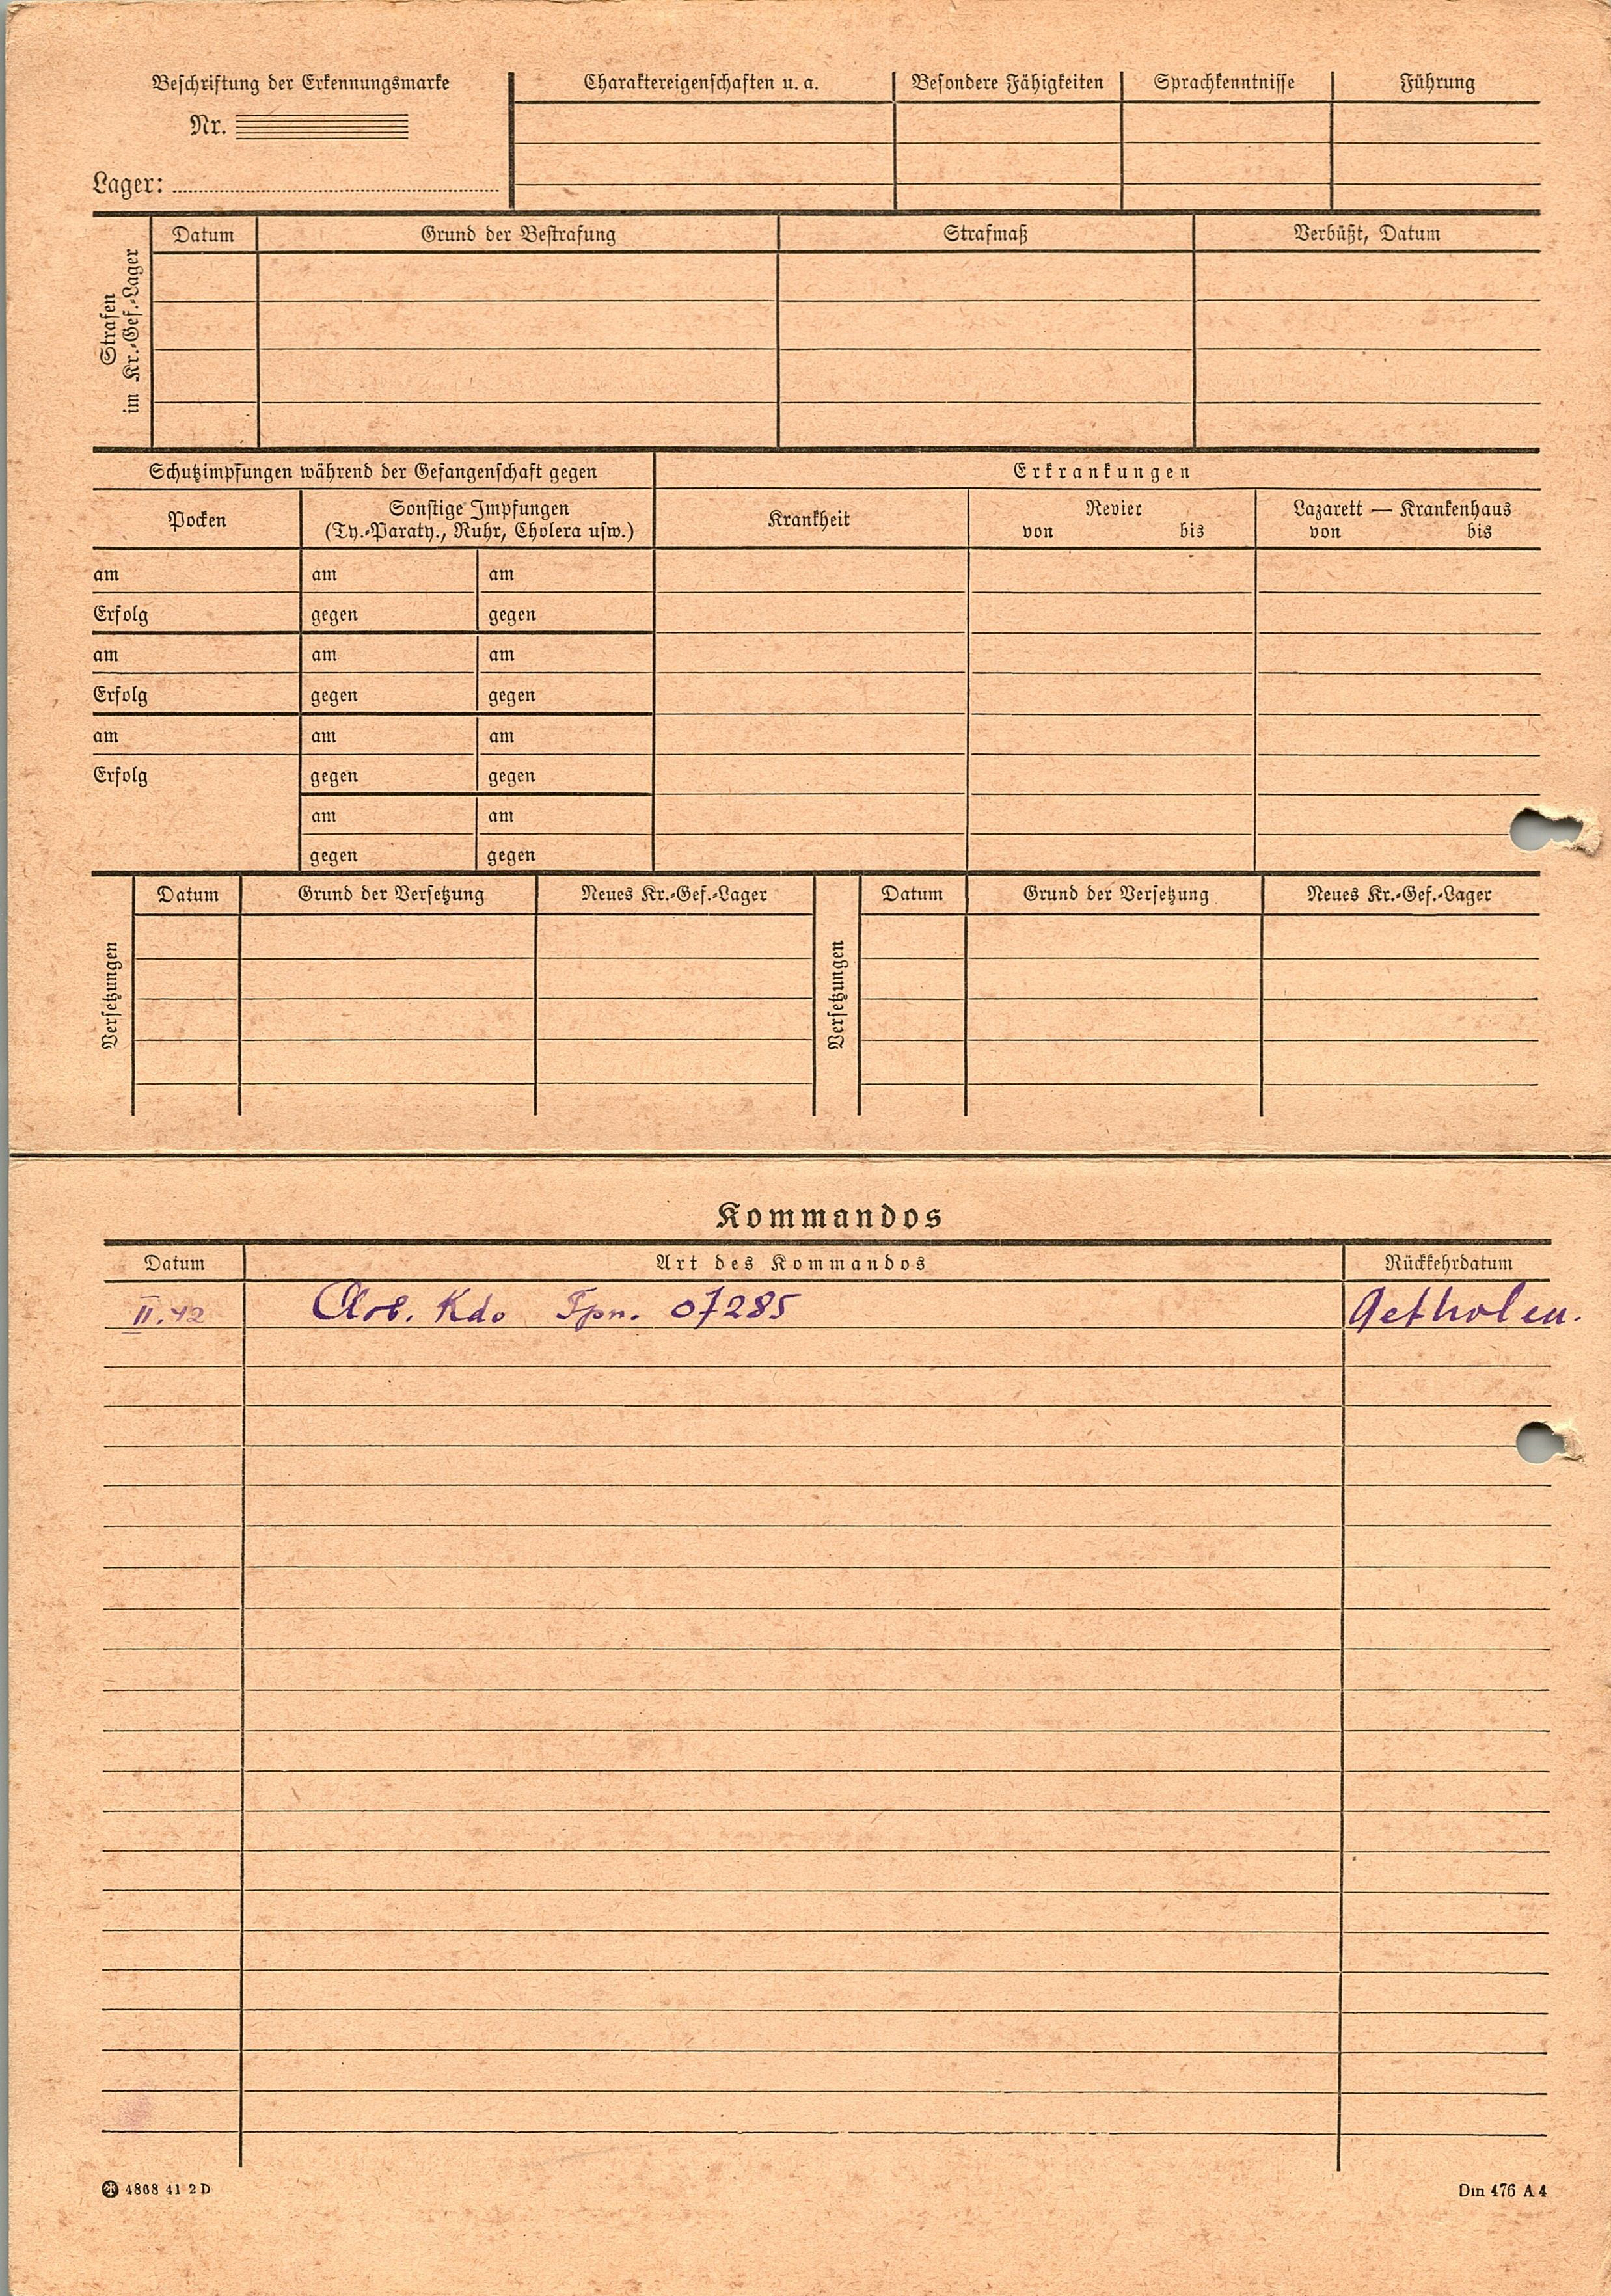 Beschriftung der Erkennungsmarke
Nr.
Lager:
Charaktereigenschaften u. a.
Besondere Fähigkeiten
Sprachkenntnisse
Führung
Strafen
im Kr.-Gef.-Lager
Datum
Grund der Bestrafung
Strafmaß
Verbüßt, Datum
Schutzimpfungen während der Gefangenschaft gegen
Erkrankungen
Pocken
Sonstige Impfungen
(Ty.-Paraty., Ruhr, Cholera usw.)
Krankheit
Revier
von bis
Lazarett — Krankenhaus
von bis
am am am
Erfolg gegen gegen
am am am
Erfolg gegen gegen
am am am
Erfolg gegen gegen
am am
gegen gegen
Versetzungen
Datum
Grund der Versetzung
Neues Kr.-Gef.-Lager
Versetzungen
Datum
Grund der Versetzung
Neues Kr.-Gef.-Lager
Kommandos
Datum Art des Kommandos Rückkehrdatum
II.42 Arb. Kdo Fpn. 07285
4868 41 2 D
Din 476 A 4